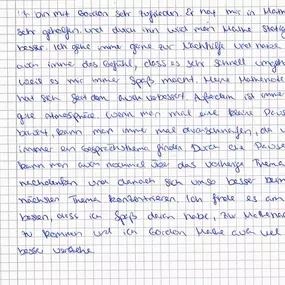 Ich bin mit Gordon sehr zufrieden. Er hat mir in Mathe
sehr geholfen und durch ihn wird mein Mathe stetig
besser. Ich gehe immer gerne zur Nachhilfe und habe
auch immer das Gefühl, dass es sehr schnell umgeht
weil es mir immer Spaß macht. Meine Mathenote
hat sich seit dem auch verbessert. Außerdem ist immer
gute Atmosphäre. Wenn man mal eine kleine Pause
braucht, kann man immer mal durchschnaufen, da wir
immer ein Gesprächsthema finden. Durch die Pause
kann man auch nochmal über das vorherige Thema
nachdenken und danach sich umso besser beim
nächsten Thema konzentrieren. Ich finde es am
besten, dass ich Spaß daran habe, zur Mathenach
zu kommen und ich Gordon Mathe auch viel
besser verstehe